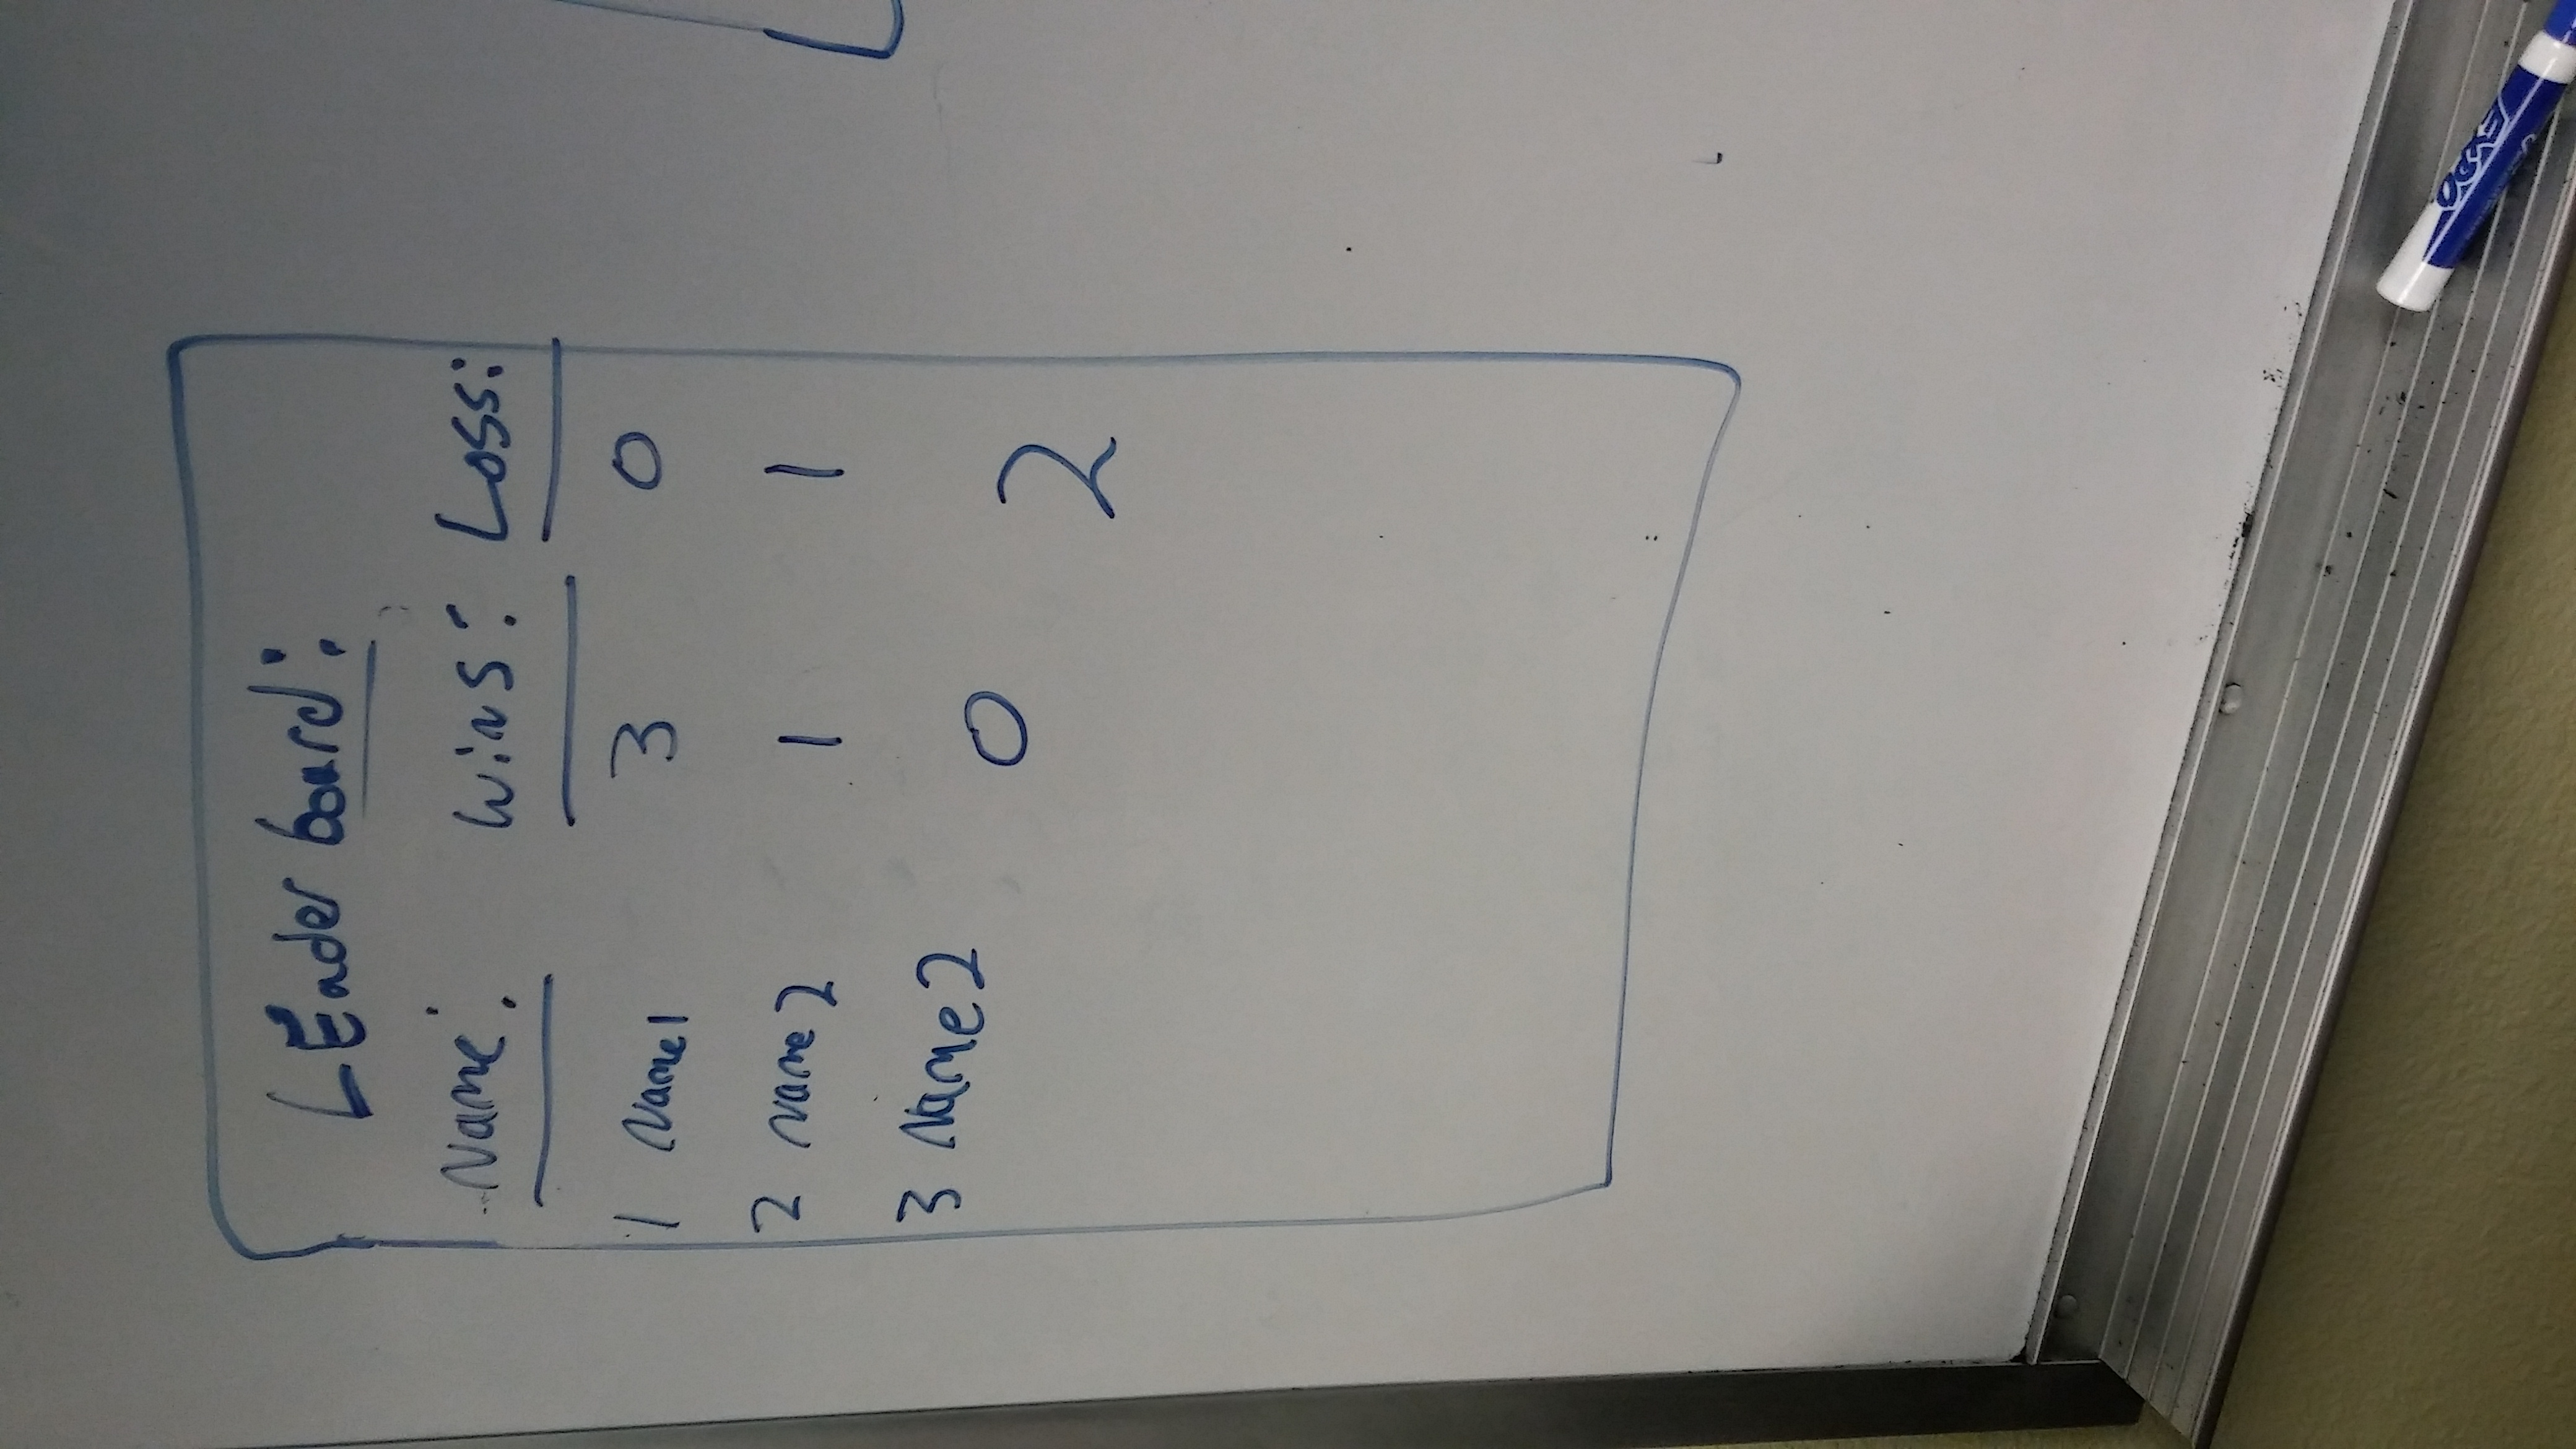 LEader board:
Name: Wins: Loss:
1 Name1 3 0
2 Name2 1 1
3 Name2 0 2
EXPO